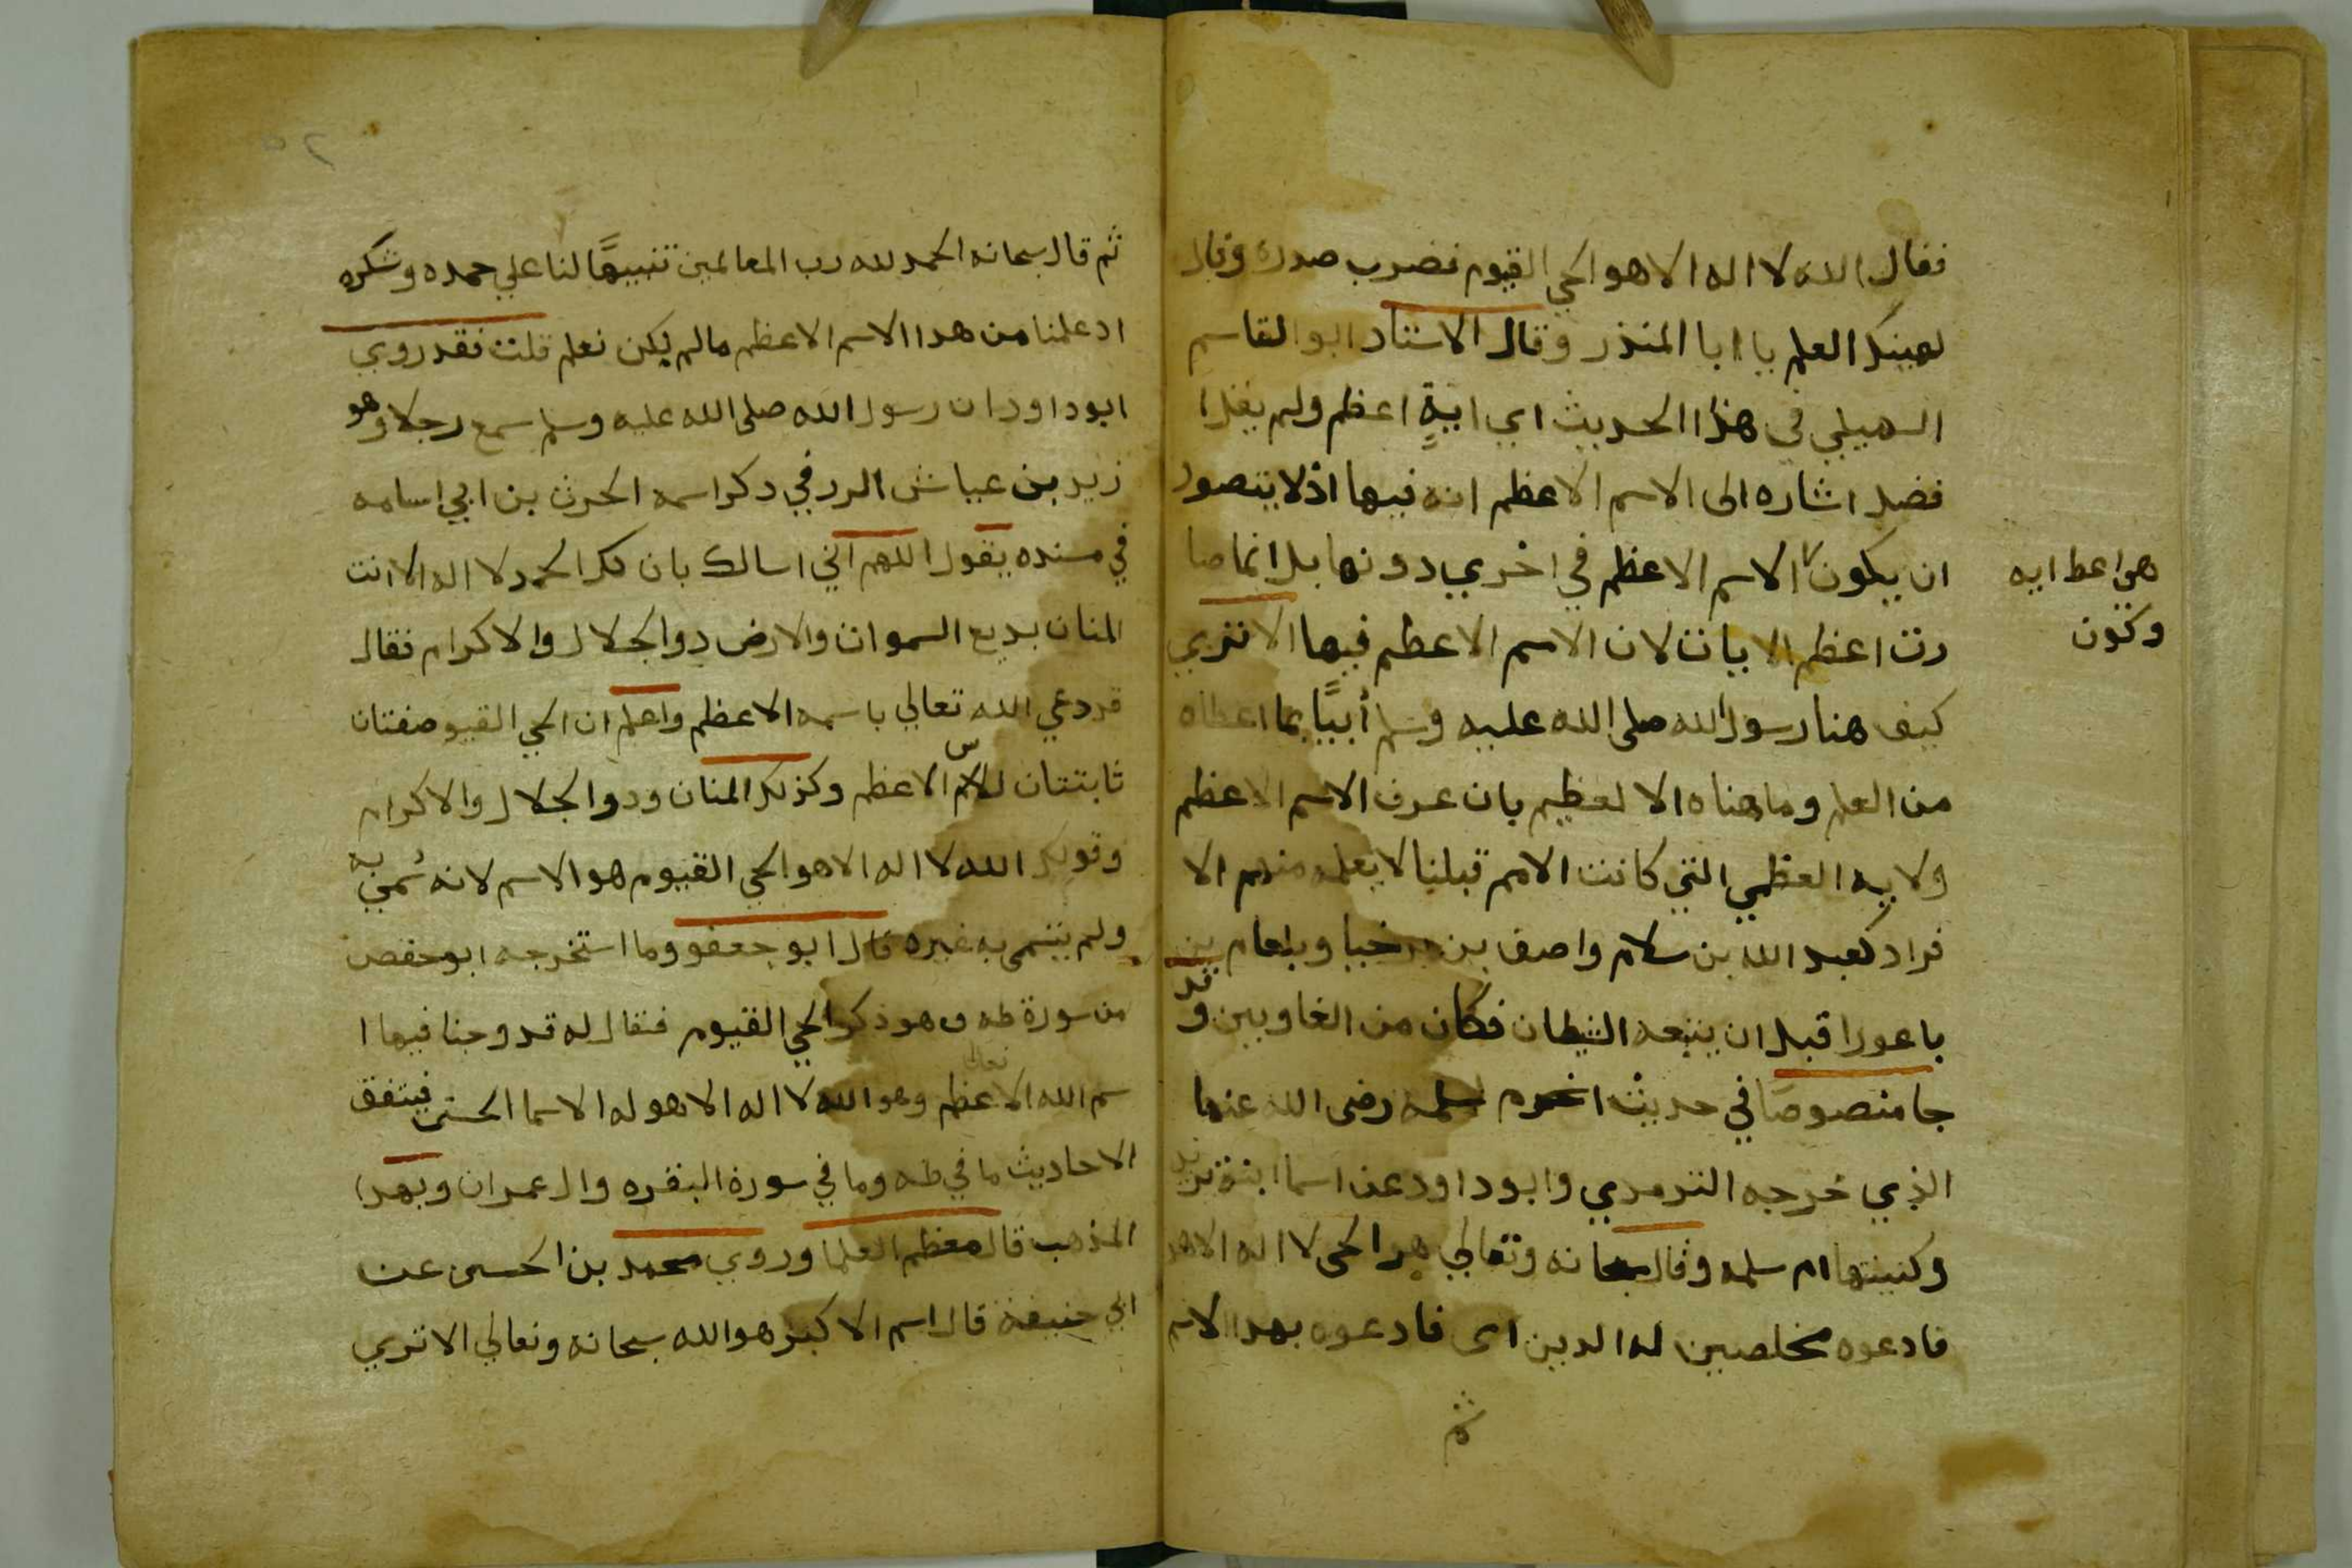 فقال الله لا اله الا هو الحي القيوم فضرب صدره وقال
لهينك العلم يا ابا المنذر وقال الاستاد ابو القاسم
السهيلي في هذا الحديث اي اية اعظم ولم يقل ا
فضل اشاره الى الاسم الاعظم انه فيها اذ لا يتصور
ان يكون الاسم الاعظم في اخري دونها بل انما صا
هي اعظ ايه
وتكون
رت اعظم الايات لان الاسم الاعظم فيها الا تري
كيف هنا رسول الله صلى الله عليه وسلم أبيًّا بما اعطاه
من العلم وما هناه الا لعظيم بان عرف الاسم الاعظم
ولايه العظمي التي كانت الامم قبلنا لا يعلمه منهم الا
فراد كعبد الله بن سلام واصف بن برخيا وبلعام بن
باعورا قبل ان يتبعه الشيطان فكان من الغاوين وقد
جا منصوصا في حديث ام سلمه رضى الله عنها
الذي خرجه الترمدي وابو داود عن اسما ابنة يزيد
وكنيتها ام سلمه وقال سبحانه وتعالي هو الحى لا اله الا هو
فادعوه مخلصين له الدين اى فادعوه بهدا الاسم
ثم
ثم قال سبحانه الحمد لله رب العالمين تنبيهًا لنا علي حمده وشكره
اد علمنا من هدا الاسم الاعظم ما لم يكن نعلم قلت فقد روي
ابو داود ان رسول الله صلى الله عليه وسلم سمع رجلا وهو
زيد بن عياش الررقي دكر اسمه الحرث بن ابي اسامه
في مسنده يقول اللهم اني اسالك بان لك الحمد لا اله الا انت
المنان بديع السموات والارض دو الجلال والاكرام فقال
قد دعي الله تعالي باسمه الاعظم واعلم ان الحي القيو صفتان
ثابتتان للاسم الاعظم وكذلك المنان ودو الجلال والاكرام
وقولك الله لا اله الا هو الحي القيوم هو الاسم لانه سُمي به
ولم يتسمى به غيره قال ابو جعفو وما استخرجه ابو حفص
من سورة طه وهو ذكر الحي القيوم فنقال له قد وجنا فيها ا
سم الله تعالى الاعظم وهو الله لا اله الا هو له الاسما الحسنى فيتفق
الاحاديث ما في طه وما في سورة البقره وال عمران وبهدا
المذهب قال معظم العلما وروي محمد بن الحسن عن
ابي حنيفة قال اسم الاكبر هو الله سبحانه وتعالي الا تري